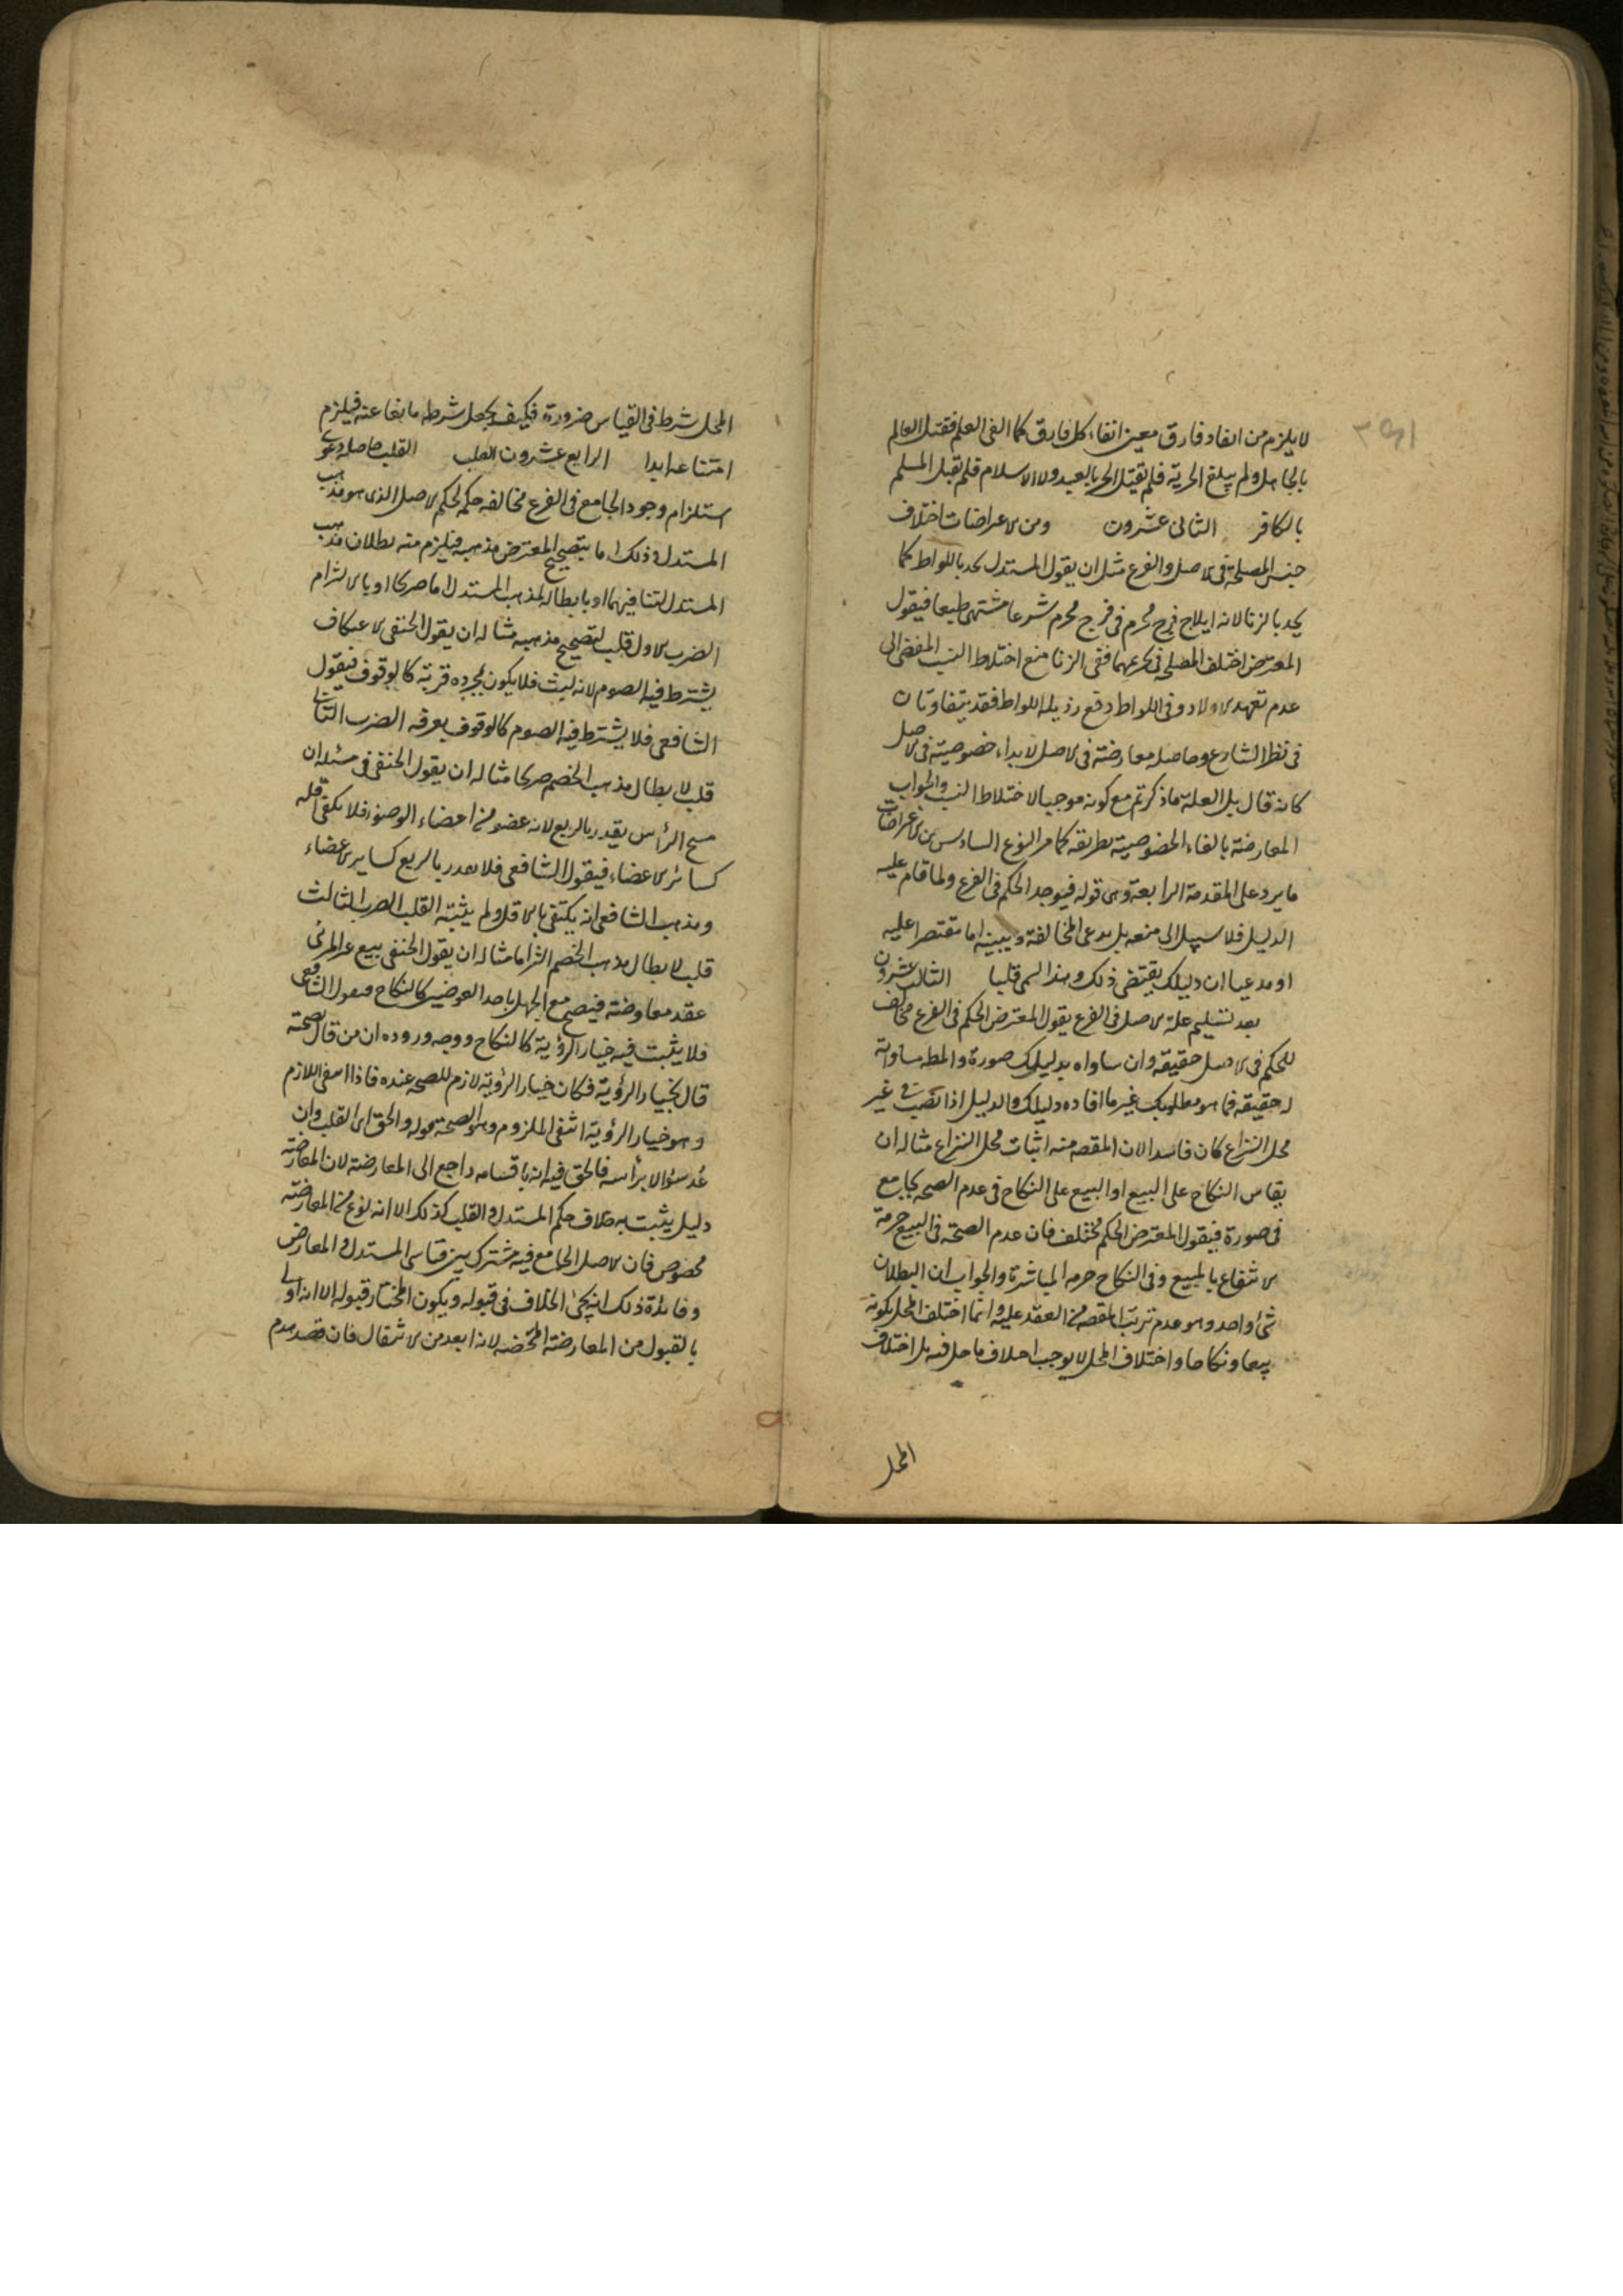 لا يلزم من الغاء فارق معين الغاء كل فارق كما الغى العلم فقتل العالم
بالجاهل ولم يلغ الحرية فلم يقتل الحر بالعبد ولا الاسلام فلم يقتل المسلم
بالكافر الثانى عشرون ومن الاعراضات اختلاف
جنس المصلحة فى الاصل والفرع مثل ان يقول المستدل يحد باللواط كما
يحد بالزنا لانه ايلاج فرج محرم فى فرج محرم شرعا مشتهى طبعا فيقول
المعترض اختلف المصلحة فى تحريمهما ففى الزنا منع اختلاط النسب المفضى الى
عدم تعهد الاولاد وفى اللواط دفع رذيلة اللواط فقد يتفاوتان
فى نظر الشارع وحاصله معارضة فى الاصل لابداء خصوصية فى الاصل
كانه قال بل العلة ماذكرتم مع كونه موجبا لاختلاط النسب والجواب
المعارضة بالغاء الخصوصية بطريقه كما مر النوع السادس من الاعراضات
ما يرد على المقدمة الرابعة وهى قوله فيوجد الحكم فى الفرع ولما قام عليه
الدليل فلا سبيل الى منعه بل يدعى المخالفة ويبينه اما مقتصرا عليه
او مدعيا ان دليلك يقتضى ذلك وهذا يسمى قلبا الثالث عشرون
بعد تسليم علة الاصل فى الفرع يقول المعترض الحكم فى الفرع مخالف
للحكم فى الاصل حقيقة وان ساواه بدليلك صورة والمط مساواته
له حقيقه فما هو مطلوبك غير ما افاده دليلك والدليل اذا نصب فى غير
محل النزاع كان فاسدا لان المقصد منه اثبات محل النزاع مثاله ان
يقاس النكاح على البيع او البيع على النكاح فى عدم الصحه بجامع
فى صورة فيقول المعترض الحكم مختلف فان عدم الصحة فى البيع حرمة
الانتفاع بالمبيع وفى النكاح حرمه المباشرة والجواب ان البطلان
شئ واحد وهو عدم ترتب المقصد من العقد عليه وانما اختلف المحل بكونه
بيعا ونكاحا واختلاف المحل لا يوجب اختلاف ما حل فيه بل اختلاف
المحل
المحل شرط فى القياس ضرورة فكيف يجعل شرطه مانعا عنه فيلزم
امتناعه ابدا الرابع عشرون القلب القلب حاصله دعوى
استلزام وجود الجامع فى الفرع مخالفه حكمه لحكم الاصل الذى هو مذهب
المستدل وذلك اما بتصحيح المعترض مذهبه فيلزم منه بطلان مذهب
المستدل لتنافيهما او بابطاله لمذهب المستدل اما صريحا او بالالتزام
الضرب الاول قلب لتصحيح مذهبه مثاله ان يقول الحنفى الاعتكاف
يشترط فيه الصوم لانه لبث فلا يكون بمجرده قربة كالوقوف فيقول
الشافعى فلا يشترط فيه الصوم كالوقوف بعرفه الضرب الثانى
قلب لابطال مذهب الخصم صريحا مثاله ان يقول الحنفى فى مسئله ان
مسح الرأس يقدر بالربع لانه عضو من اعضاء الوضوء فلا يكفى اقله
كسائر الاعضاء فيقول الشافعى فلا يقدر بالربع كساير الاعضاء
ومذهب الشافعى انه يكتفى بالاقل ولم يثبته القلب الضرب الثالث
قلب لابطال مذهب الخصم التزاما مثاله ان يقول الحنفى بيع غير المرئى
عقد معاوضة فيصح مع الجهل باحد العوضين كالنكاح فيقول الشافعى
فلا يثبت فيه خيار الرؤية كالنكاح ووجه وروده ان من قال بصحته
قال بخيار الرؤية فكان خيار الرؤية لازم للصحه عنده فاذا انتفى اللازم
وهو خيار الرؤية انتفى الملزوم وهو الصحة قوله والحق اى القلب وان
عد سؤالا برأسه فالحق فيه انه باقسامه راجع الى المعارضة لان المعارضة
دليل يثبت به خلاف حكم المستدل والقلب كذلك الا انه نوع من المعارضة
مخصوص فان الاصل الجامع فيه مشترك بين قياسى المستدل والمعارض
وفائدة ذلك انه يجئ الخلاف فى قبوله ويكون المختار قبوله الا انه اولى
بالقبول من المعارضة المحضه لانه ابعد من الانتقال فان قصد هدم